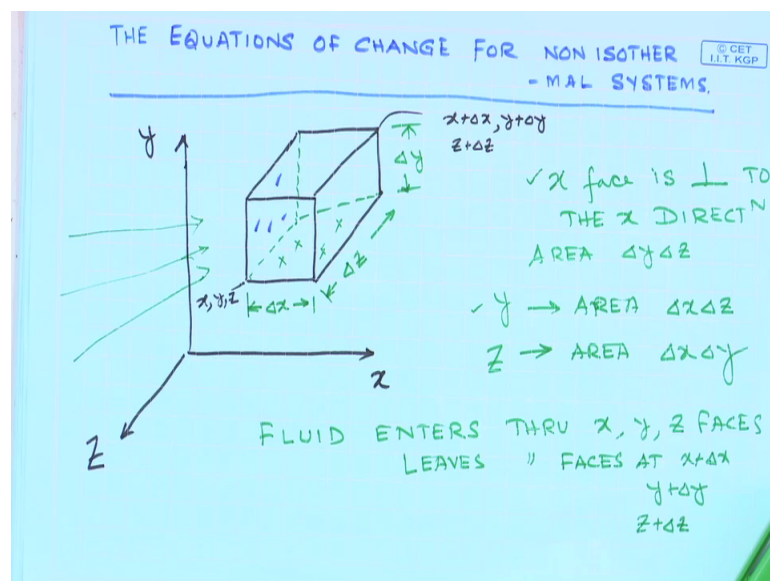 THE EQUATIONS OF CHANGE FOR NON ISOTHER
- MAL SYSTEMS.
© CET
I.I.T. KGP
y
x+Δx, y+Δy
z+Δz
Δy
✓ x face is ⊥ TO
THE x DIRECTᴺ
AREA ΔyΔz
Δz
x,y,z
Δx
✓ y → AREA ΔxΔz
z → AREA ΔxΔy
x
z
FLUID ENTERS THRU x, y, z FACES
LEAVES " FACES AT x+Δx
y+Δy
z+Δz